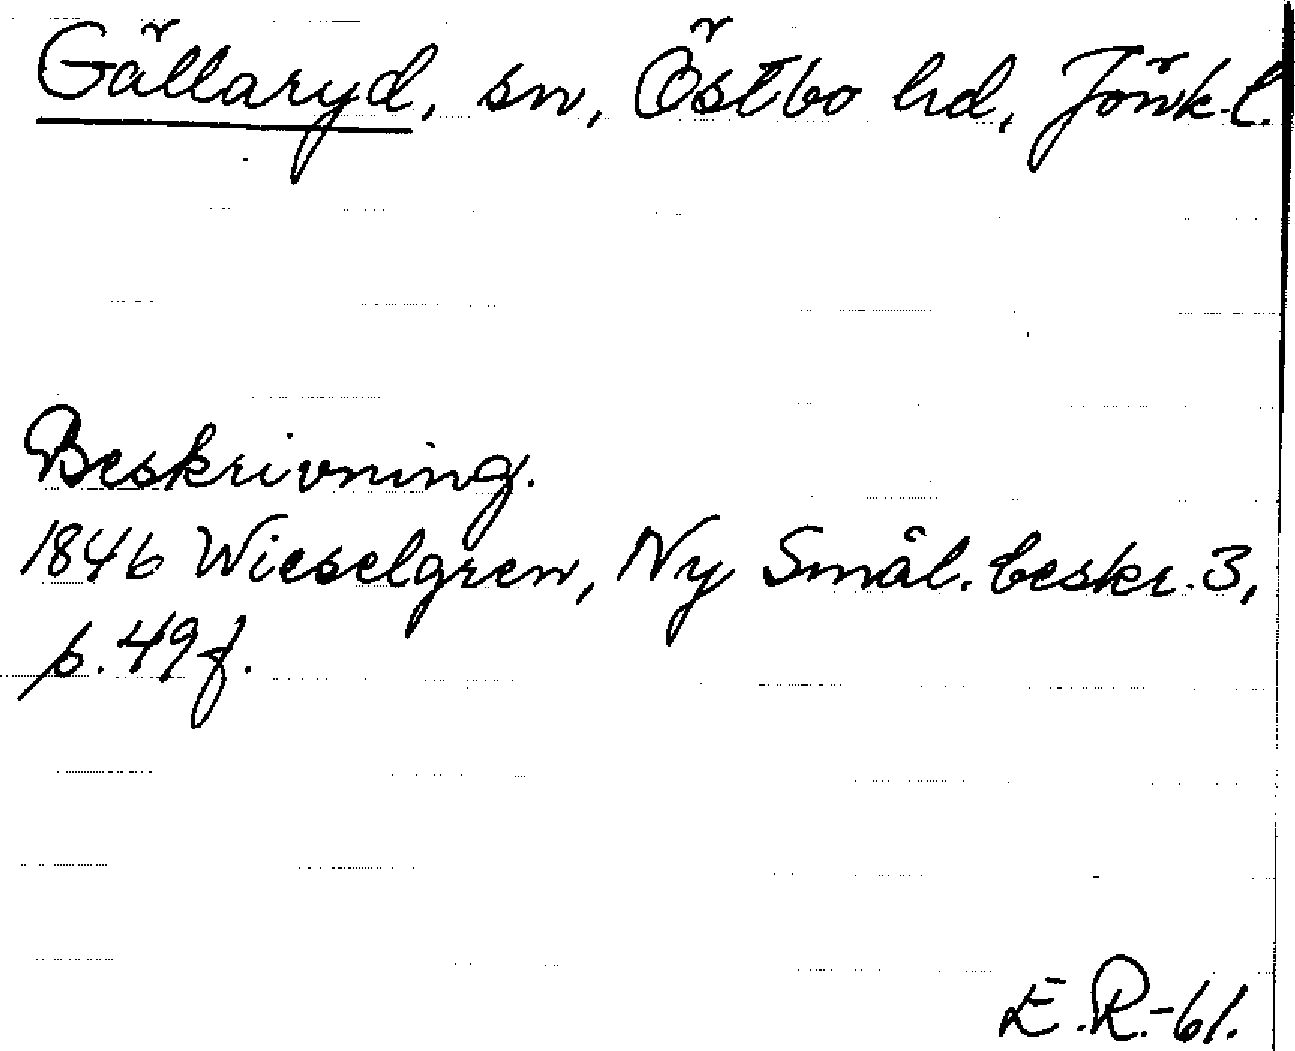 Gällaryd, sn, Östbo hd, Jönk.l.
Beskrivning.
1846 Wieselgren, Ny Smål. beskr. 3,
p. 49 f.
E.R.-61.